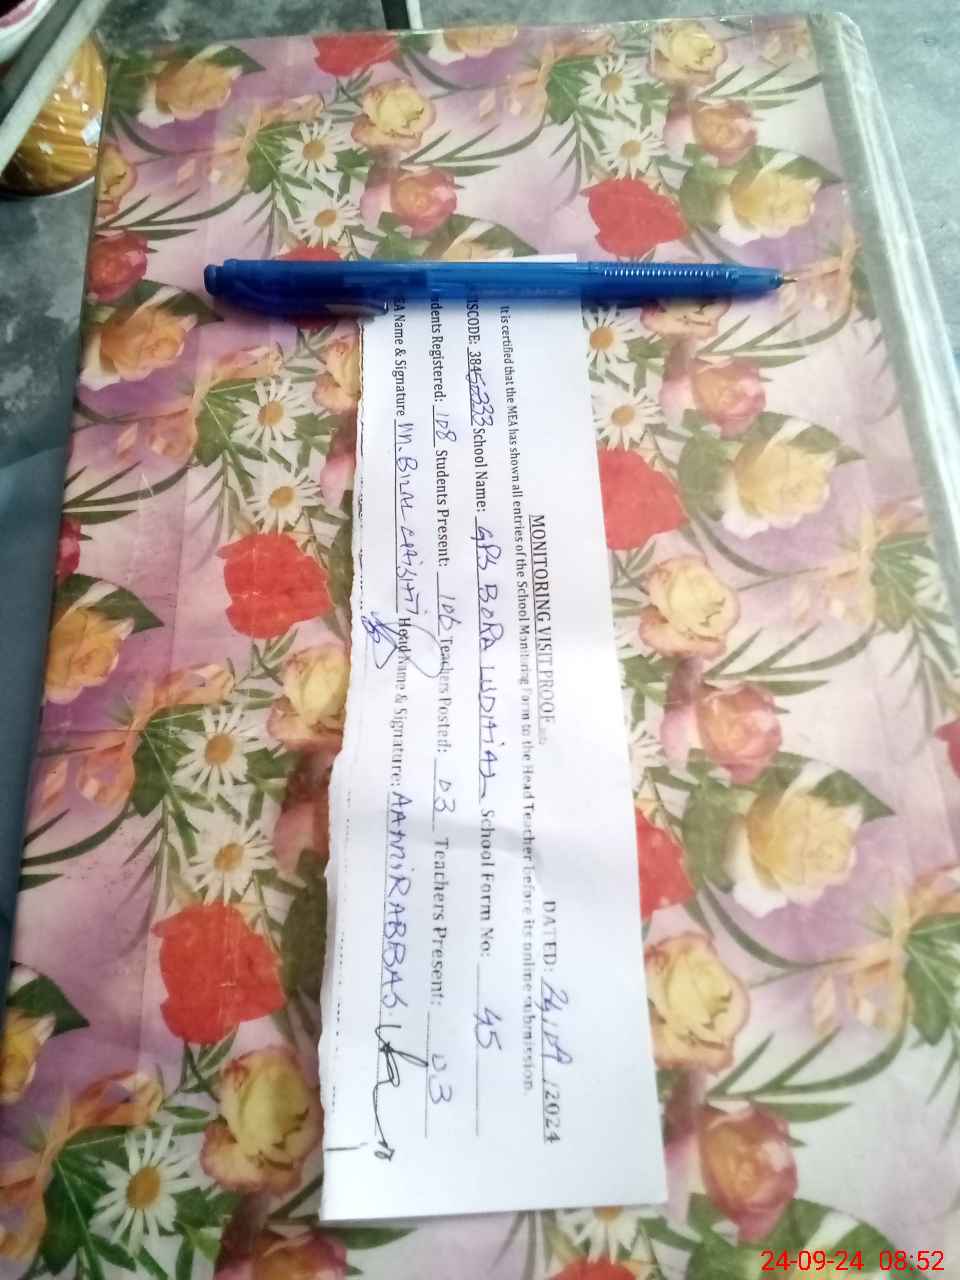 MONITORING VISIT PROOF DATED: 24/09/2024
It is certified that the MEA has shown all entries of the School Monitoring Form to the Head Teacher before its online submission.
ISCODE: 38452333 School Name: GPS BORA LUDHIAL School Form No: 45
dents Registered: 108 Students Present: 106 Teachers Posted: 03 Teachers Present: 03
EA Name & Signature M. BILAL CHISHTI Head Name & Signature: AAMIR ABBAS
24-09-24 08:52